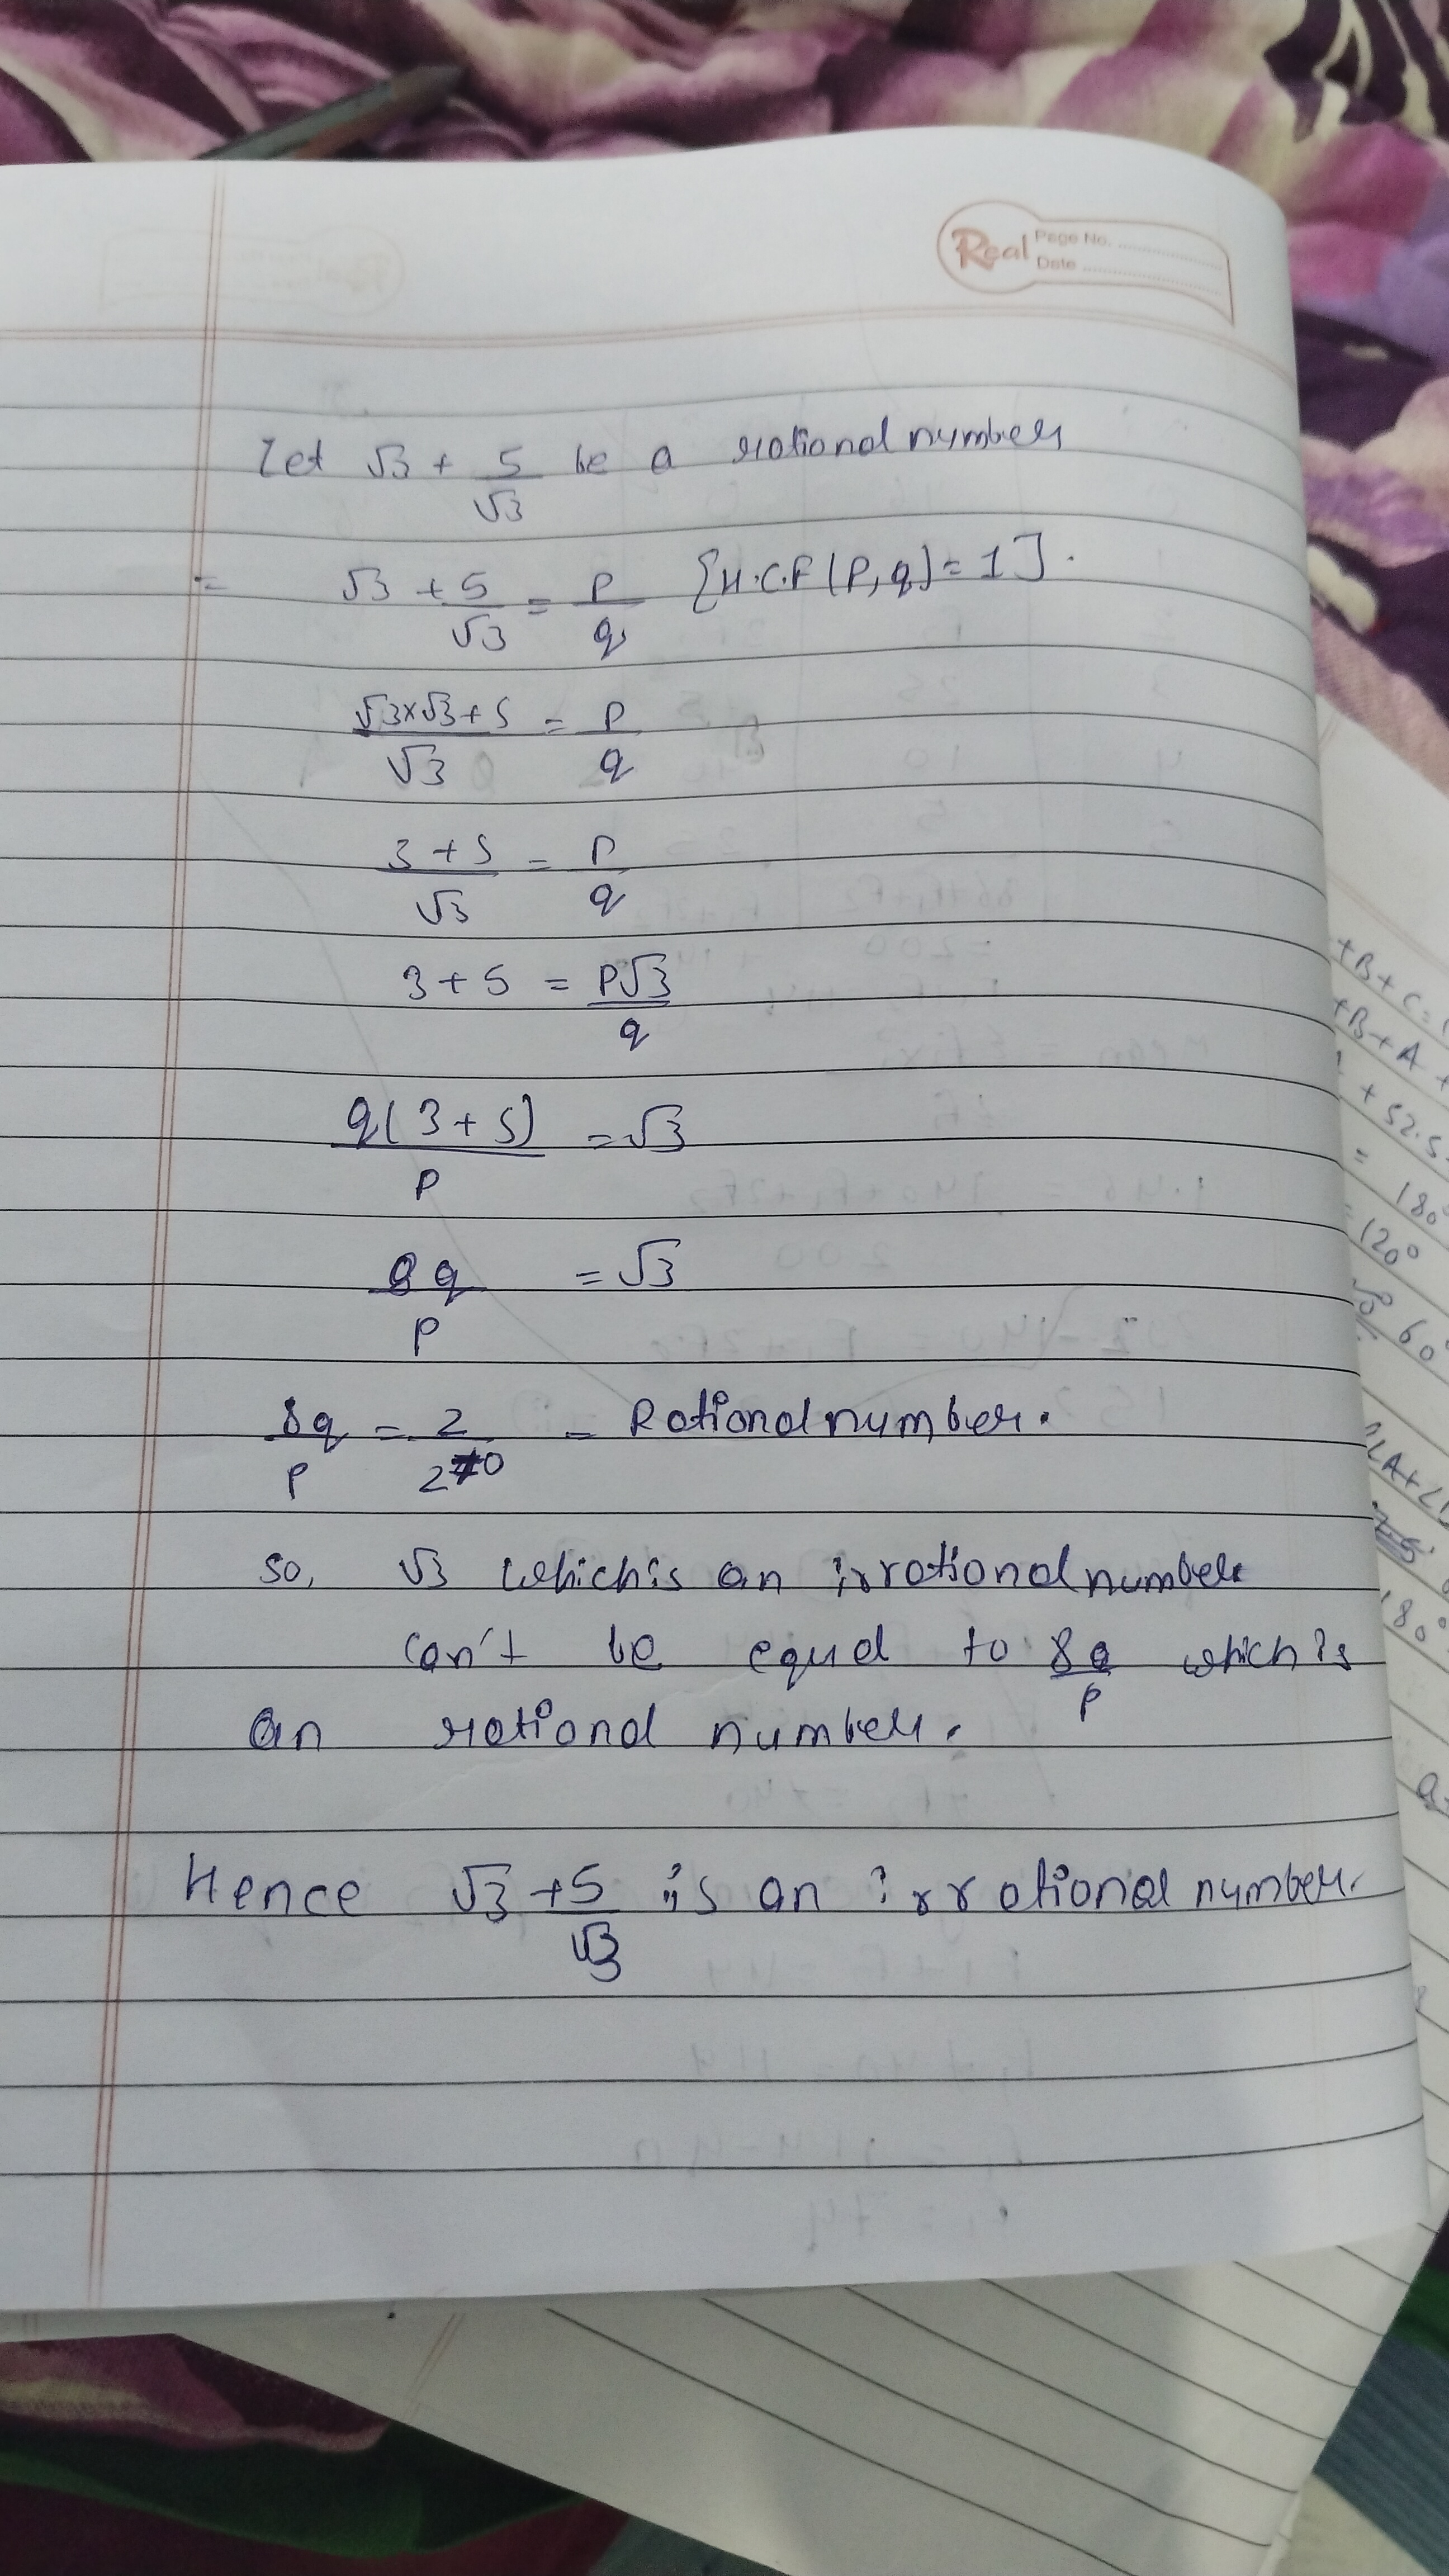 Real Page No. ..............
Date ..............
Let √3 + 5/√3 be a rational number
= √3 + 5/√3 = P/q [H.C.F(P,q)=1].
√3×√3+5/√3 = P/q
3+5/√3 = P/q
3+5 = P√3/q
q(3+5)/P = √3
8q/P = √3
8q/P = Z/Z≠0 = Rational number.
so, √3 which is an irrational number
can't be equal to 8q/P which is
an rational number.
Hence √3+5/√3 is an irrational number.
+B+C=
+B+A+
+52.5
= 180°
=120°
60°
180°